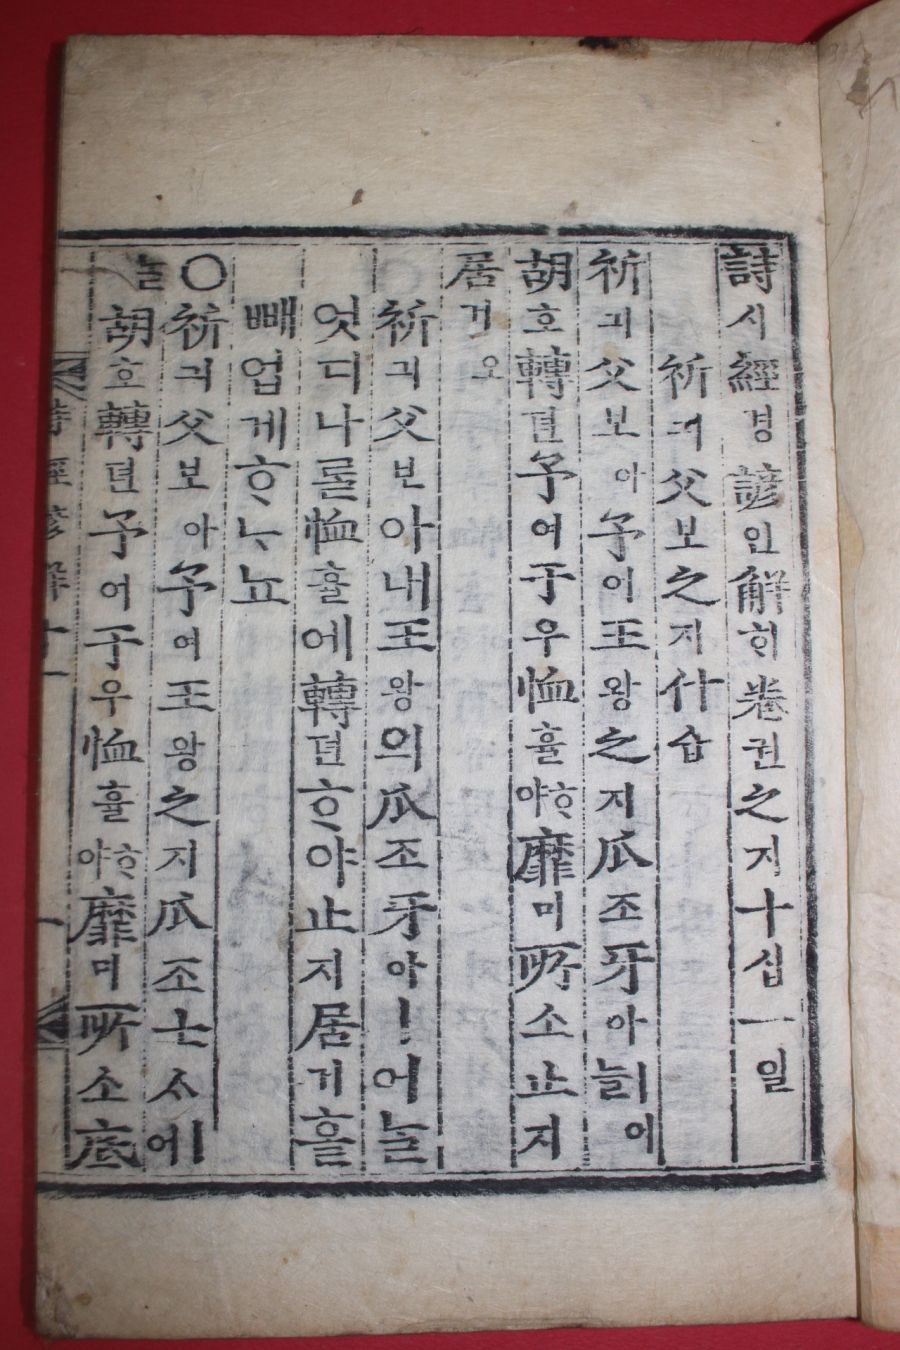 詩시經경諺언解ᄒᆡ卷권之지十십一일
祈긔父보之지什습
祈긔父보아予여王왕之지爪조牙아ㅣ어늘
胡호轉뎐予여于우恤휼ᄒᆞ야靡미所소止지
居거오
○祈긔父보아내王왕의爪조牙아ㅣ어늘
엇디나ᄅᆞᆯ恤휼에轉뎐ᄒᆞ야止지居거ᄒᆞᆯ
빼업게ᄒᆞᄂᆞ뇨
○祈긔父보아予여王왕之지爪조士ᄉᆞㅣ어늘
胡호轉뎐予여于우恤휼ᄒᆞ야靡미所소底
詩經諺解十一 一